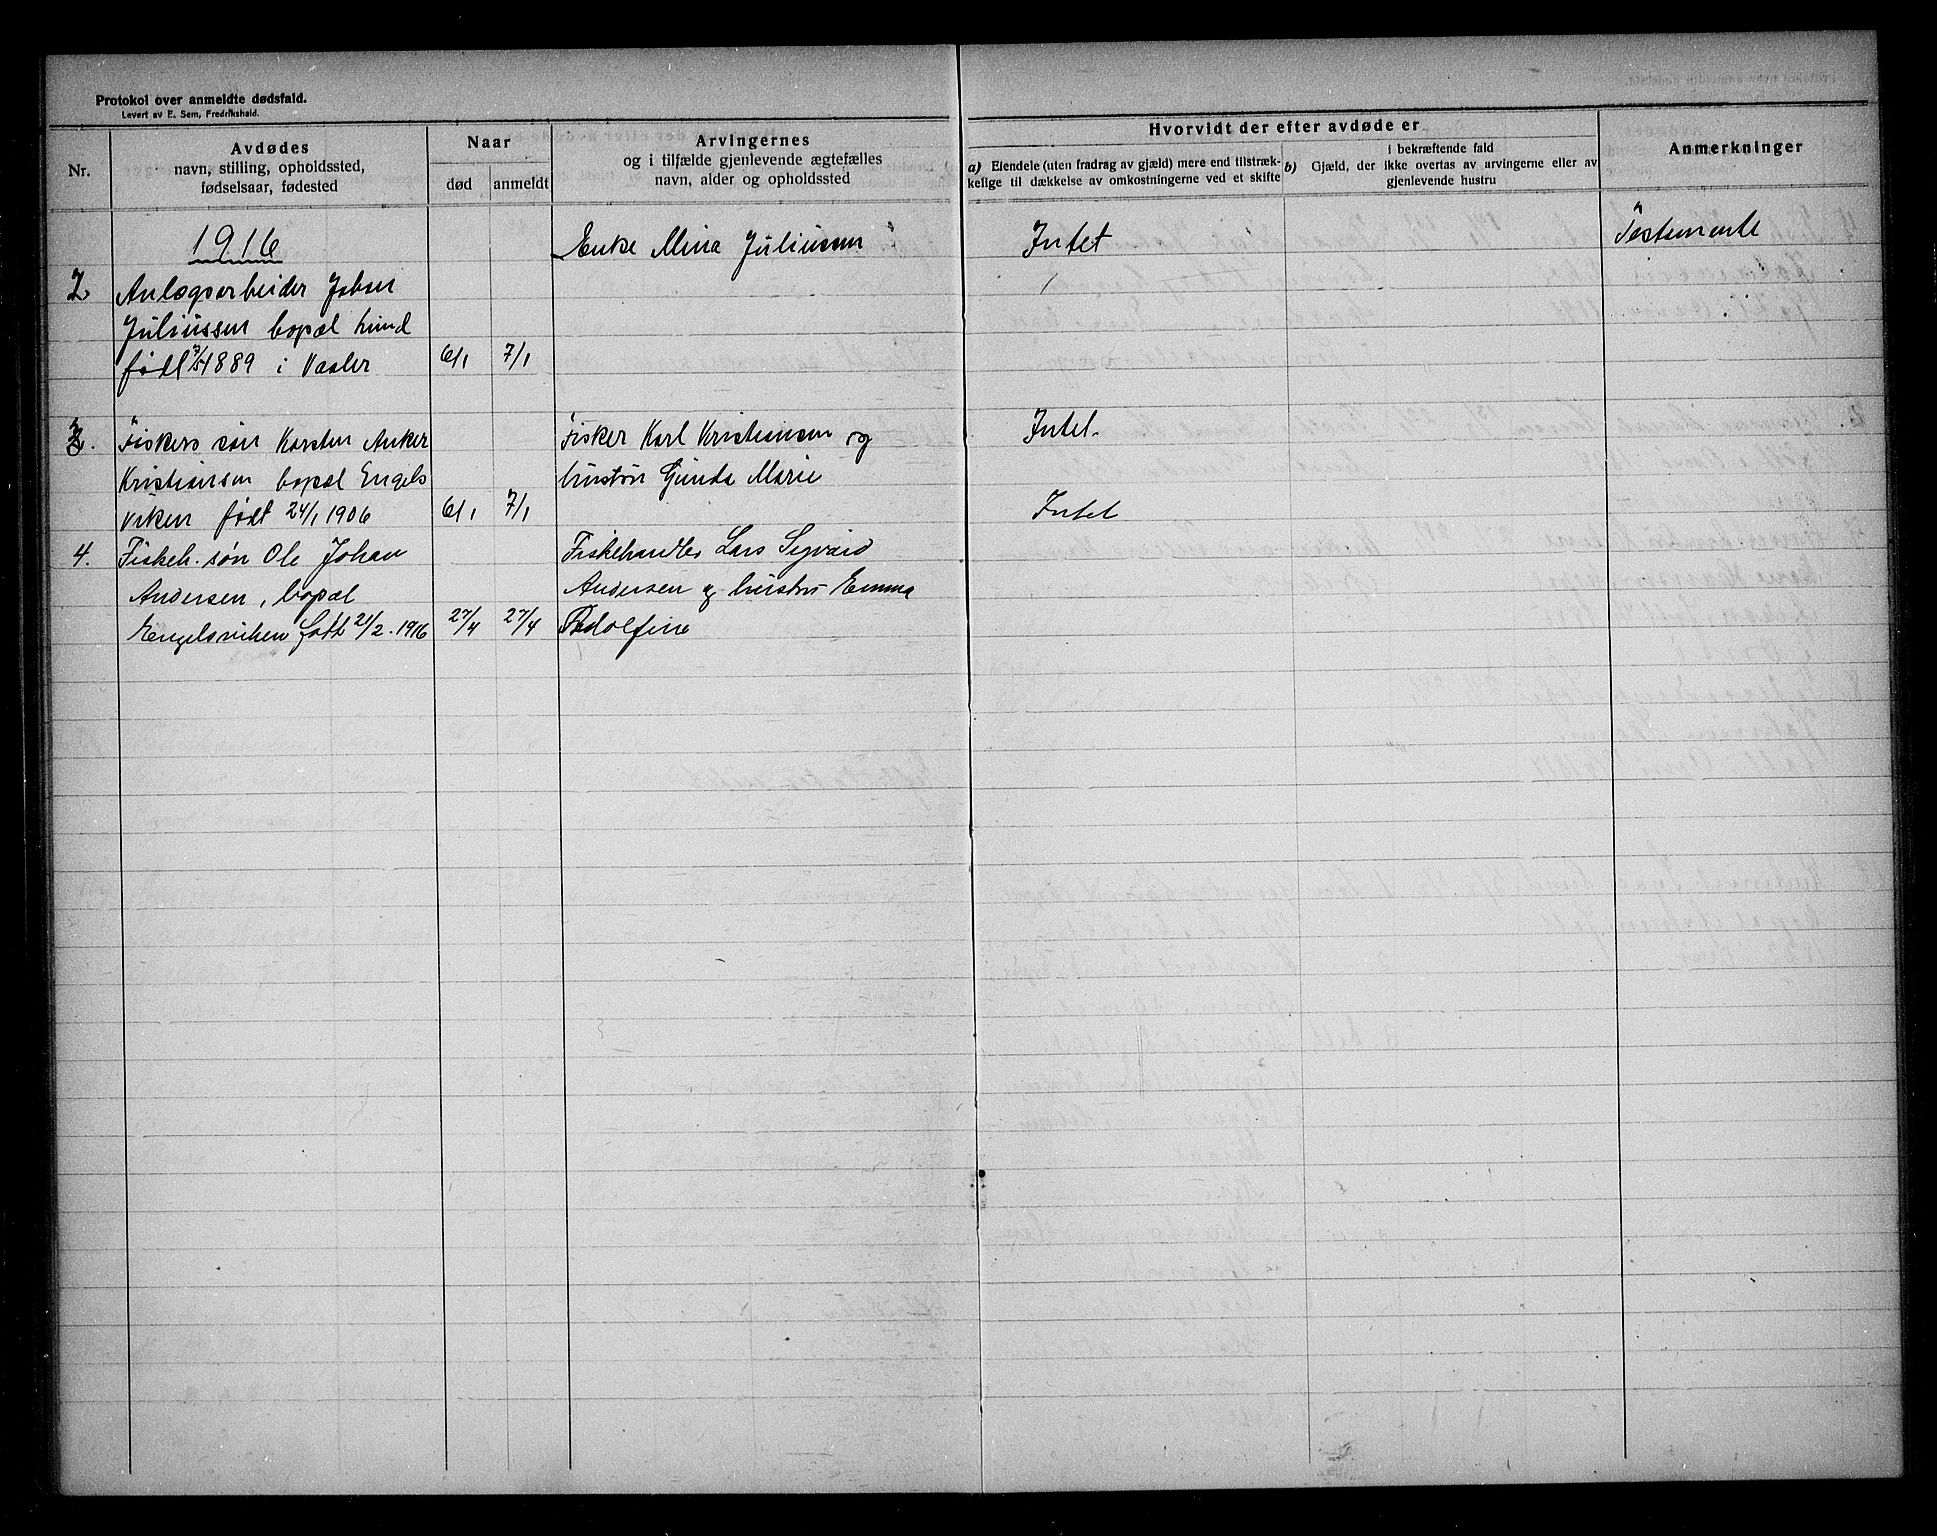 Protokol over anmeldte dødsfald.
Levert av E. Sem, Fredrikshald.
Nr.
Avdødes
navn, stilling, opholdssted,
fødselsaar, fødested
Naar
død
anmeldt
Arvingernes
og i tilfælde gjenlevende ægtefælles
navn, alder og opholdssted
Hvorvidt der efter avdøde er
a) Eiendele (uten fradrag av gjæld) mere end tilstræk-
kelige til dækkelse av omkostningerne ved et skifte
i bekræftende fald
b) Gjæld, der ikke overtas av arvingerne eller av
gjenlevende hustru
Anmerkninger
1916
Enke Mina Juliussen
Intet
Testamente
2
Anlægsarbeider Johan
Juliussen bopæl Lund
født 1889 i Vaaler 6/1 7/1
3.
Fiskers søn Karsten Anker
Kristiansen bopæl Engels
viken født 24/1 1906 6/1 7/1
Fisker Karl Kristiansen og
hustru Gunda Marie
Intet.
4.
Fiskeh. søn Ole Johan
Andersen, bopæl
Engelsviken født 21/2. 1916 27/4 27/4
Fiskehandler Lars Sigvard
Andersen og hustru Emma
Adolfine
Intet